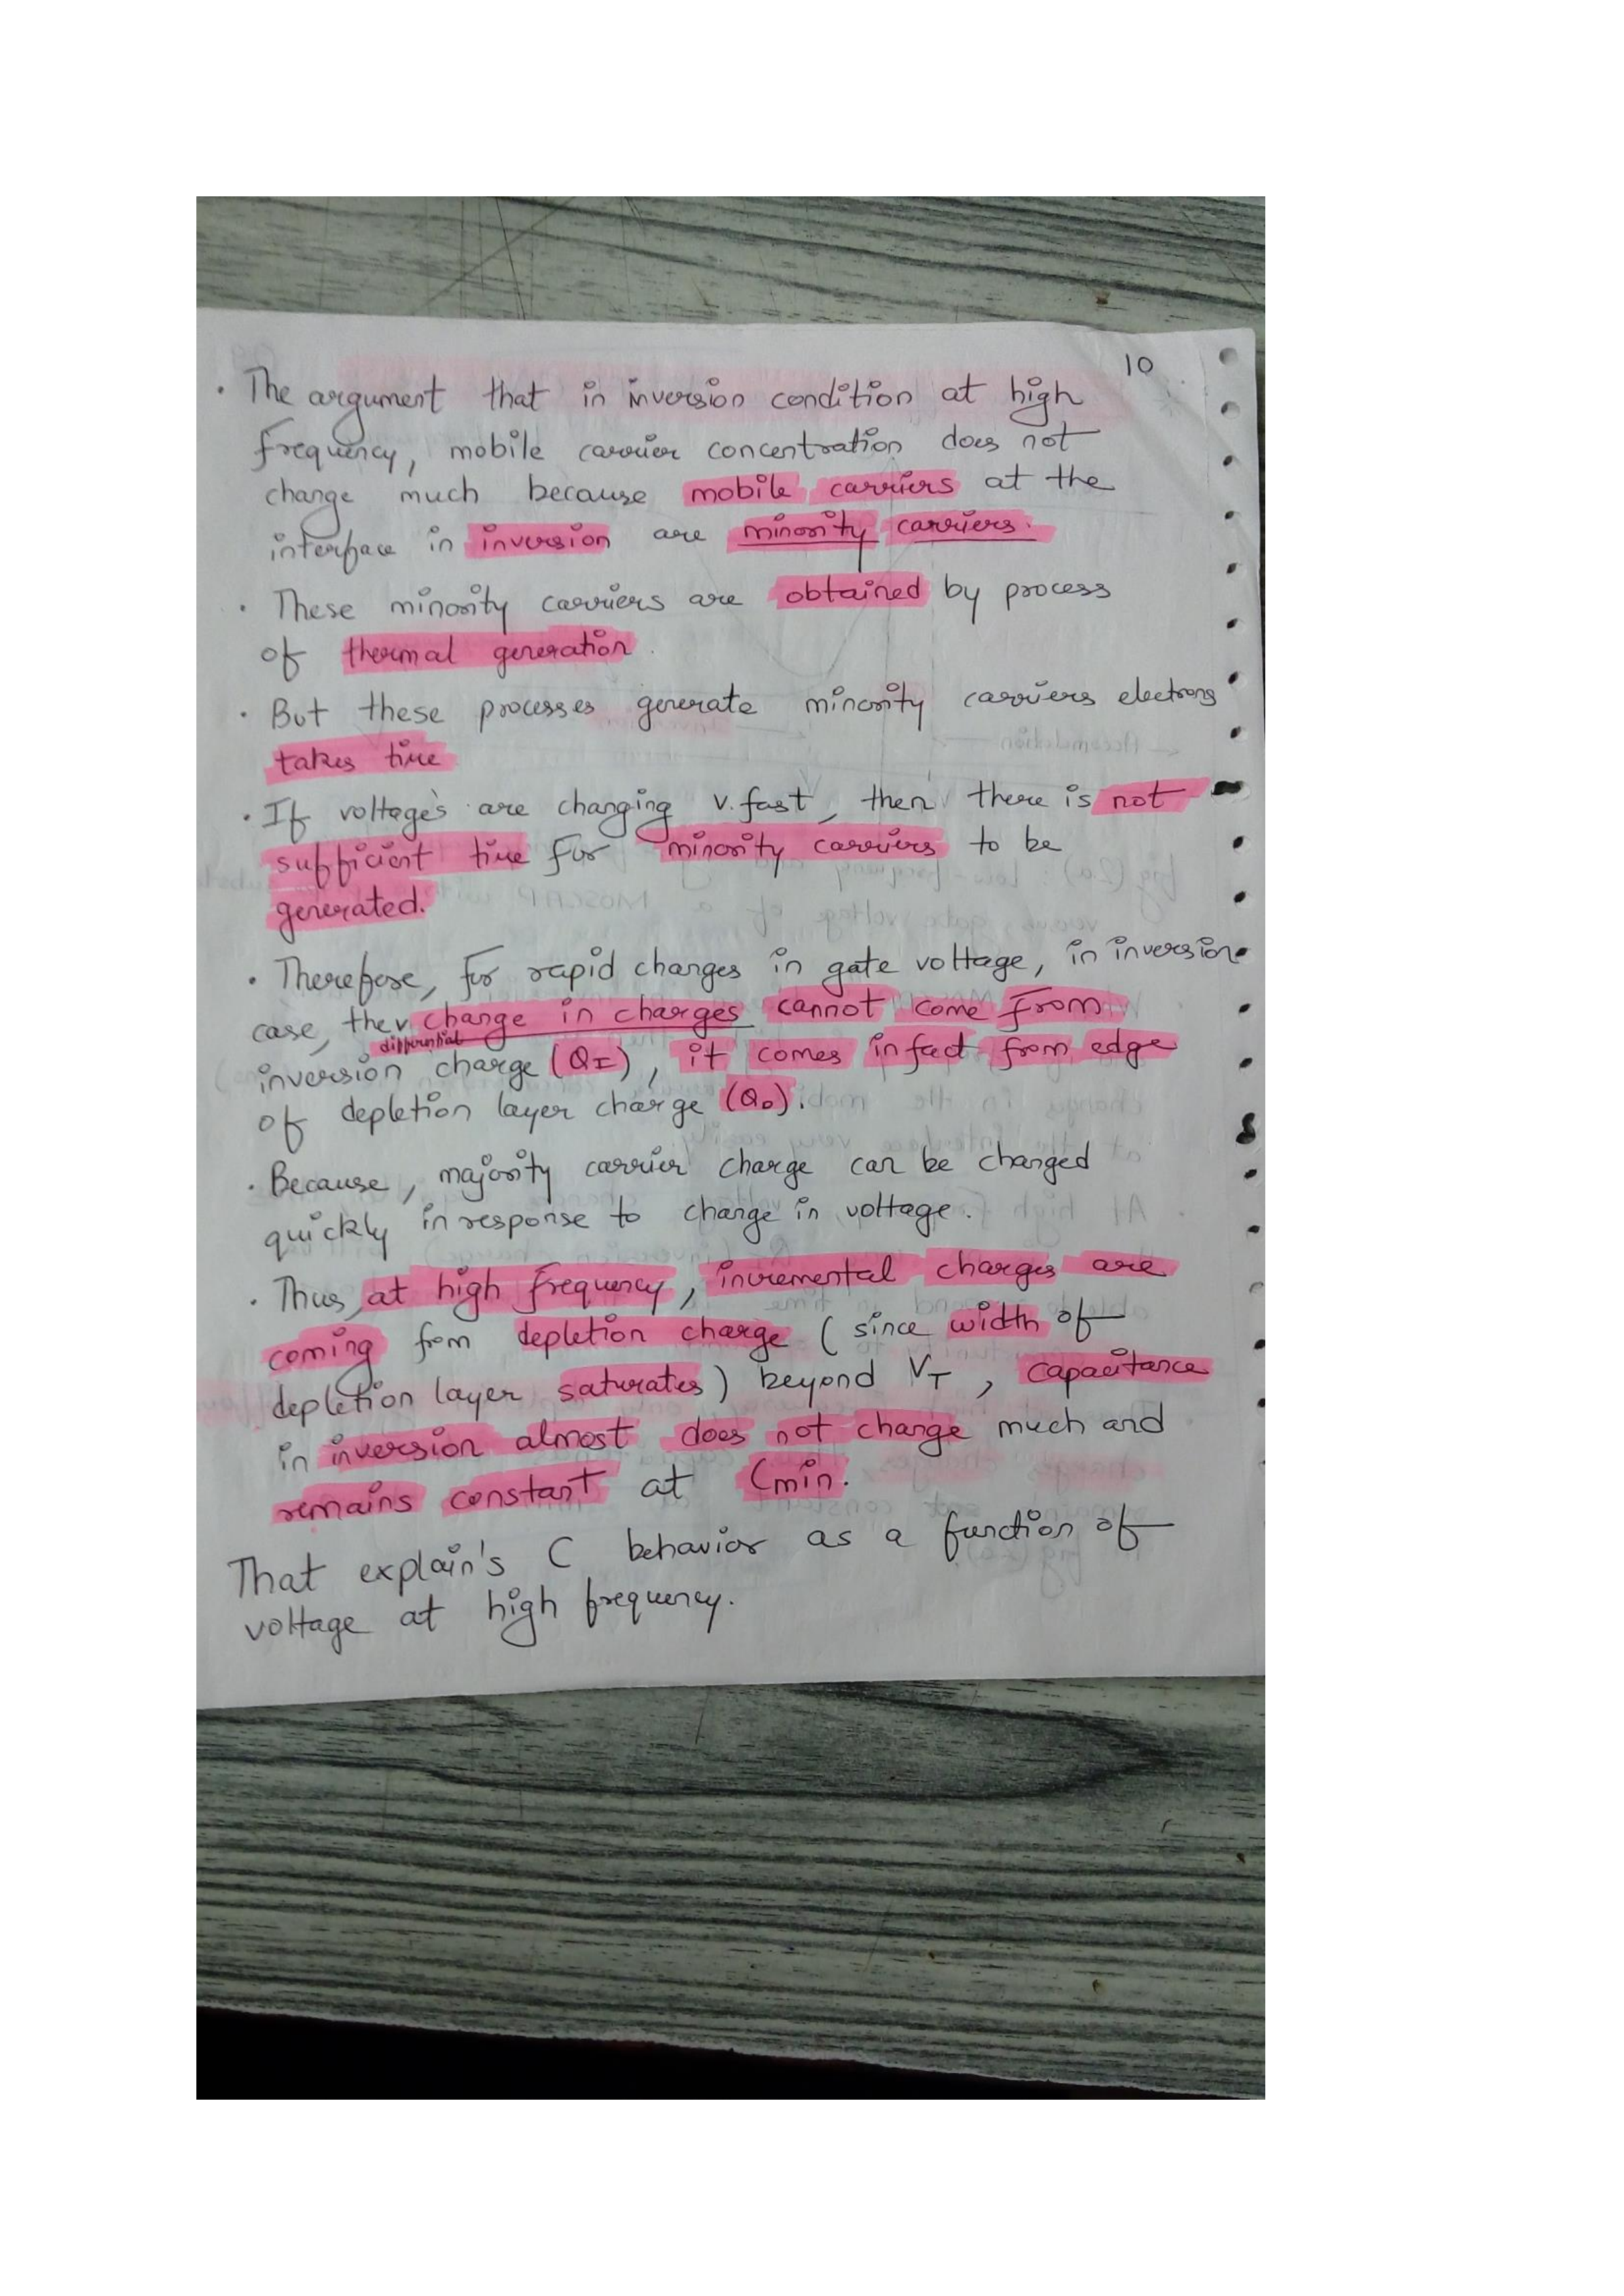 10
· The argument that in inversion condition at high
frequency, mobile carrier concentration does not
change much because mobile carriers at the
interface in inversion are minority carriers.
· These minority carriers are obtained by process
of thermal generation.
· But these processes generate minority carriers electrons
takes time
· If voltages are changing v.fast, then there is not
sufficient time for minority carriers to be
generated.
· Therefore, for rapid changes in gate voltage, in inversion
case, the change in charges cannot come from
differential
inversion charge (QI), it comes infact from edge
of depletion layer charge (QD).
· Because, majority carrier charge can be changed
quickly in response to change in voltage.
· Thus, at high frequency, incremental charges are
coming from depletion charge (since width of
depletion layer saturates) beyond VT, capacitance
in inversion almost does not change much and
remains constant at Cmin.
That explain's C behavior as a function of
voltage at high frequency.